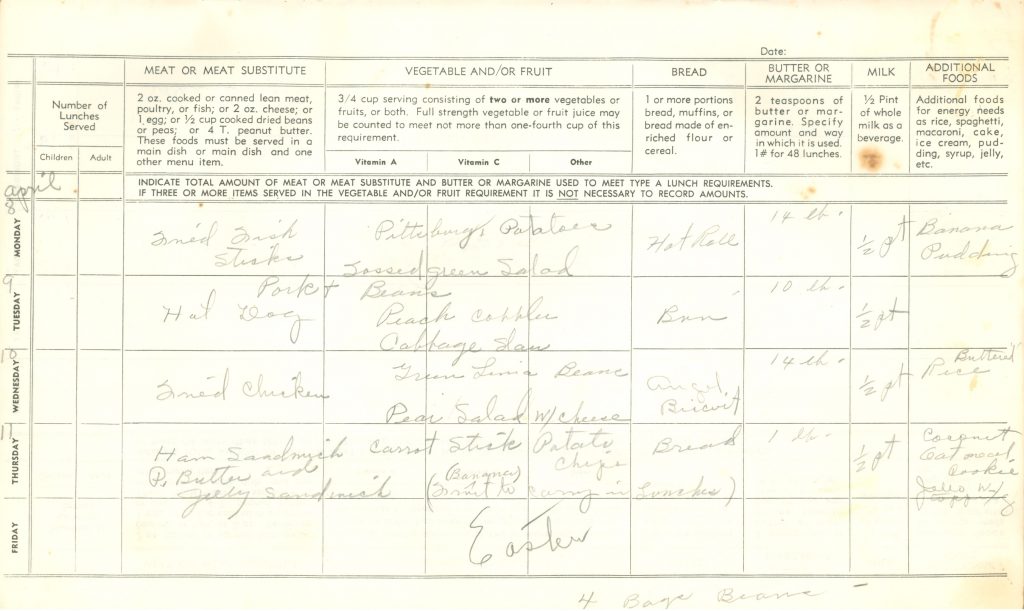 Date:
MEAT OR MEAT SUBSTITUTE
VEGETABLE AND/OR FRUIT
BREAD
BUTTER OR
MARGARINE
MILK
ADDITIONAL
FOODS
Number of
Lunches
Served
Children
Adult
2 oz. cooked or canned lean meat,
poultry, or fish; or 2 oz. cheese; or
1 egg; or ½ cup cooked dried beans
or peas; or 4 T. peanut butter.
These foods must be served in a
main dish or main dish and one
other menu item.
3/4 cup serving consisting of two or more vegetables or
fruits, or both. Full strength vegetable or fruit juice may
be counted to meet not more than one-fourth cup of this
requirement.
Vitamin A
Vitamin C
Other
1 or more portions
bread, muffins, or
bread made of en-
riched flour or
cereal.
2 teaspoons of
butter or mar-
garine. Specify
amount and way
in which it is used.
1# for 48 lunches.
½ Pint
of whole
milk as a
beverage.
Additional foods
for energy needs
as rice, spaghetti,
macaroni, cake,
ice cream, pud-
ding, syrup, jelly,
etc.
INDICATE TOTAL AMOUNT OF MEAT OR MEAT SUBSTITUTE AND BUTTER OR MARGARINE USED TO MEET TYPE A LUNCH REQUIREMENTS.
IF THREE OR MORE ITEMS SERVED IN THE VEGETABLE AND/OR FRUIT REQUIREMENT IT IS NOT NECESSARY TO RECORD AMOUNTS.
April
8
MONDAY
Fried Fish
Sticks
Pittsburgs Potatoes
Tossed green Salad
Hot Roll
14 lb.
½ pt
Banana
Pudding
9
TUESDAY
Hot Dog
Pork + Beans
Peach Cobbler
Cabbage Slaw
Bun
10 lb.
½ pt
10
WEDNESDAY
Fried Chicken
Green Lima Beans
Pear Salad W/ cheese
Angel
Biscuit
14 lb.
½ pt
Buttered
Rice
11
THURSDAY
Ham Sandwich
P. Butter and
Jelly Sandwich
Carrot Stick Potato
Chips
(Bananas)
(Fruit to carry in Lunches)
Bread
1 lb.
½ pt
Coconut
Oatmeal
Cookie
Jello W/
FRIDAY
Easter
4 Bags Beans